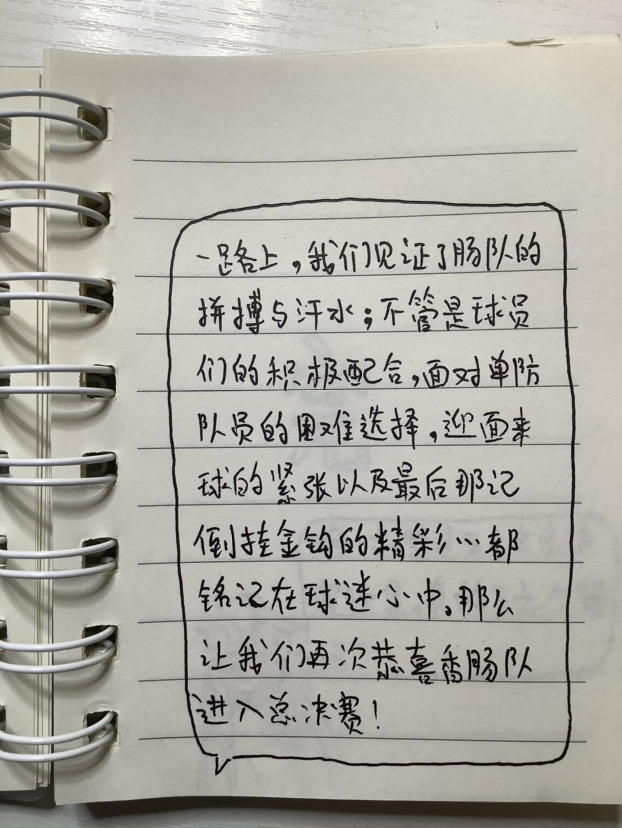 一路上，我们见证了肠队的
拼搏与汗水；不管是球员
们的积极配合，面对单防
队员的困难选择，迎面来
球的紧张以及最后那记
倒挂金钩的精彩…都
铭记在球迷心中。那么
让我们再次恭喜香肠队
进入总决赛！